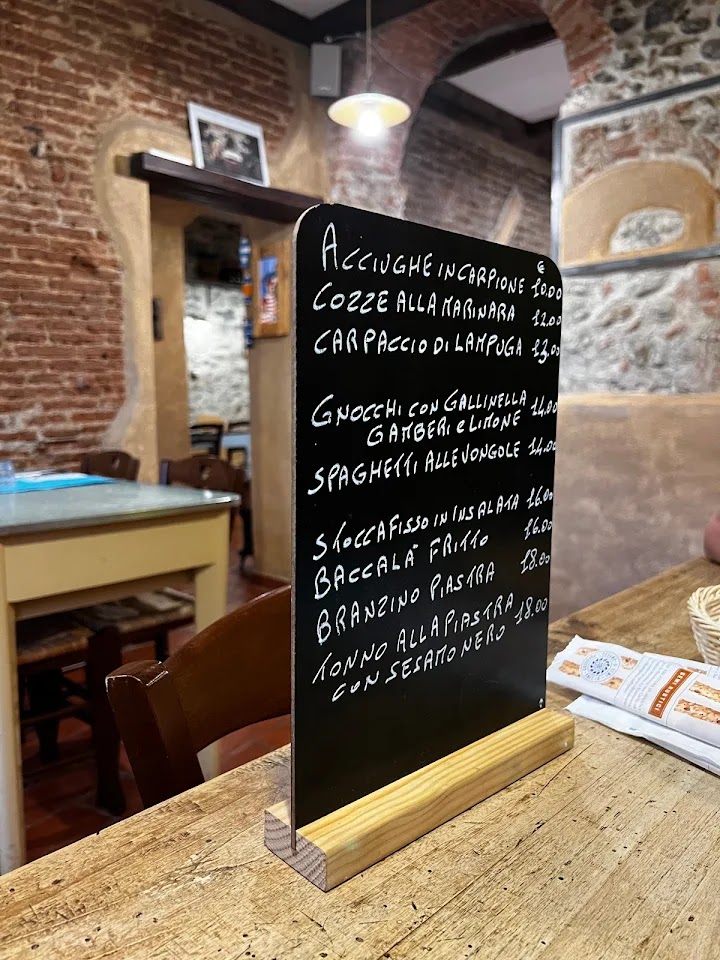 €
ACCIUGHE IN CARPIONE 10.00
COZZE ALLA MARINARA 12.00
CARPACCIO DI LAMPUGA 13.00
GNOCCHI CON GALLINELLA
GAMBERI e LIMONE 14.00
SPAGHETTI ALLE VONGOLE 14.00
STOCCAFISSO IN INSALATA 16.00
BACCALA' FRITTO 16.00
BRANZINO PIASTRA 18.00
TONNO ALLA PIASTRA 18.00
CON SESAMO NERO
SEMI RUSTICI